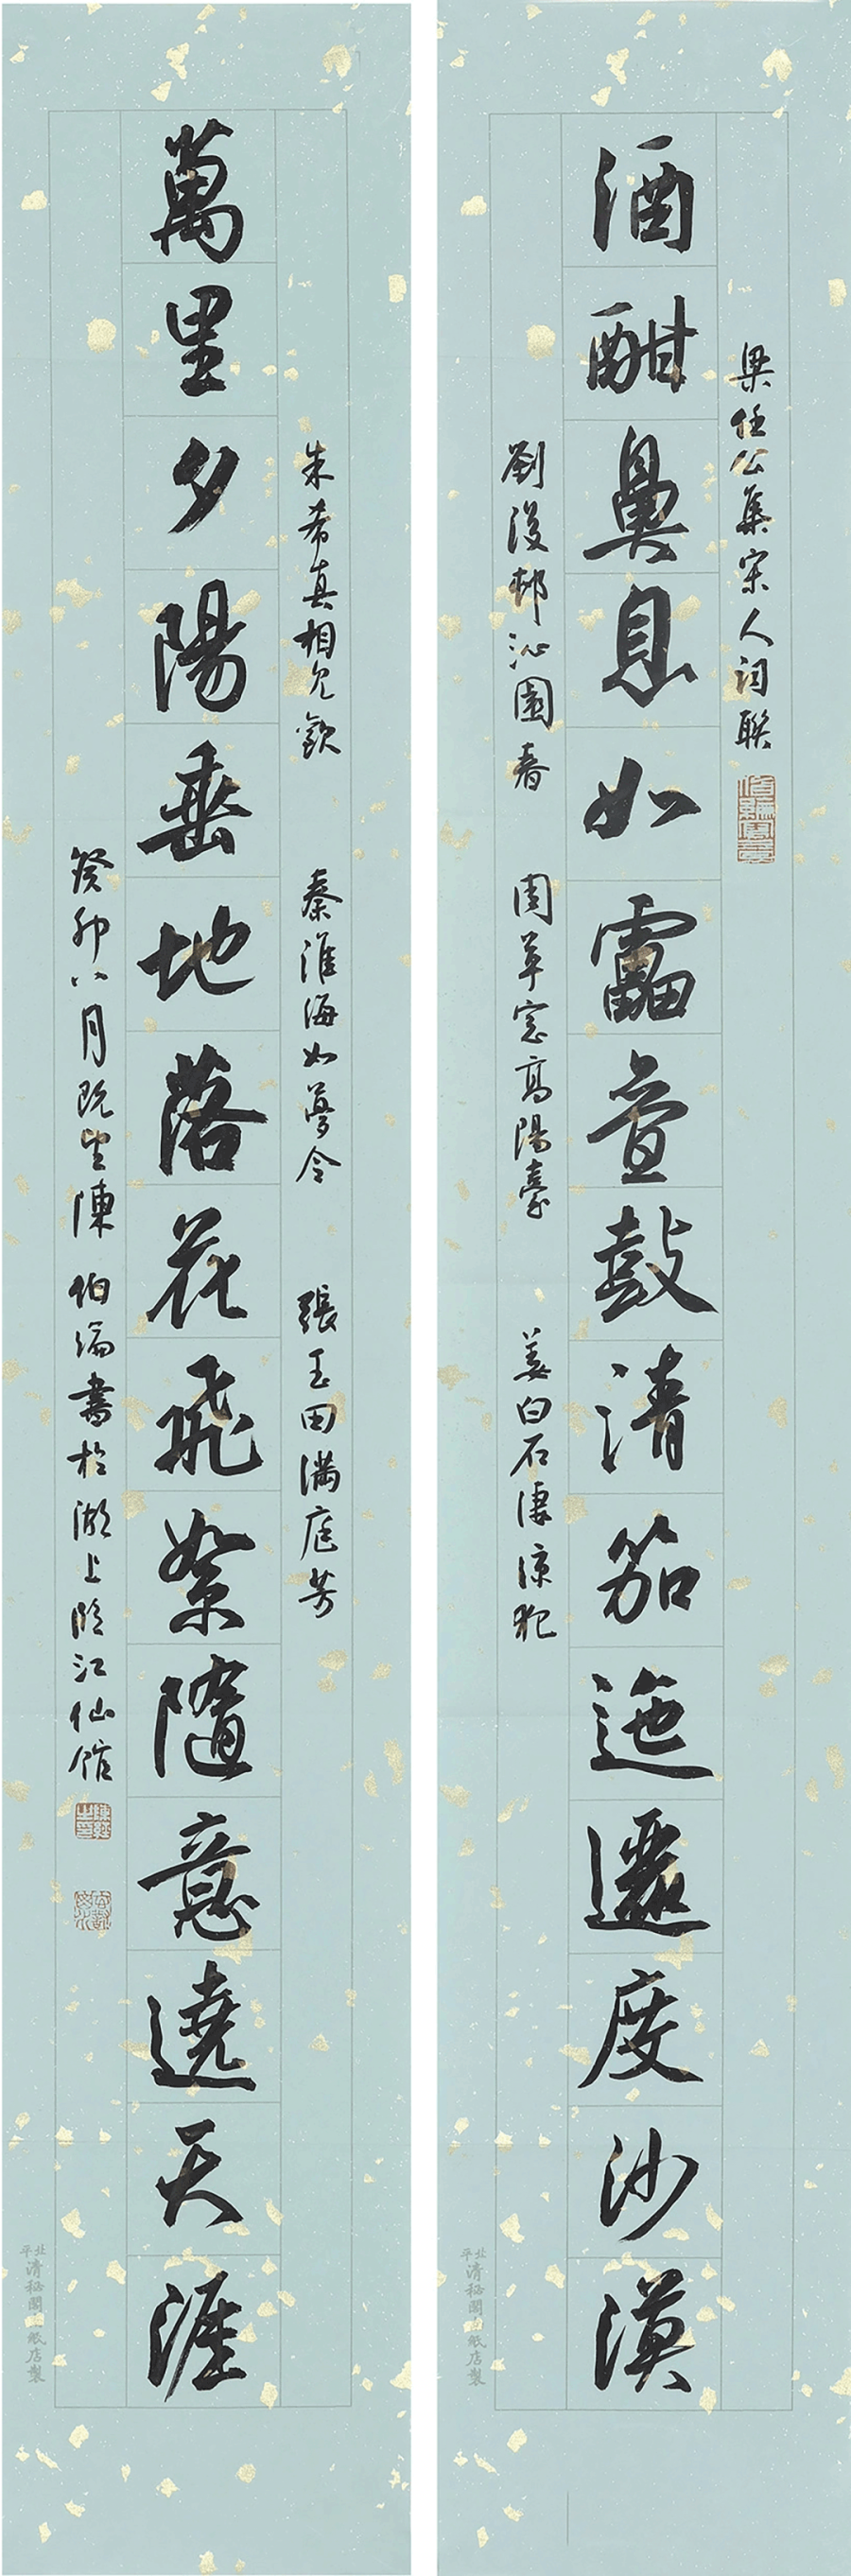 梁任公集宋人詞聯
酒酣鼻息如靁疊鼓清笳迤邐度沙漠
劉後邨沁園春 周草窗高陽臺 姜白石淒涼犯
北平清秘閣紙店製
朱希真相見歡 秦淮海如夢令 張玉田滿庭芳
萬里夕陽垂地落花飛絮隨意遶天涯
癸卯八月既望陳 伯瀛書於湖上臨江仙館
北平清秘閣紙店製